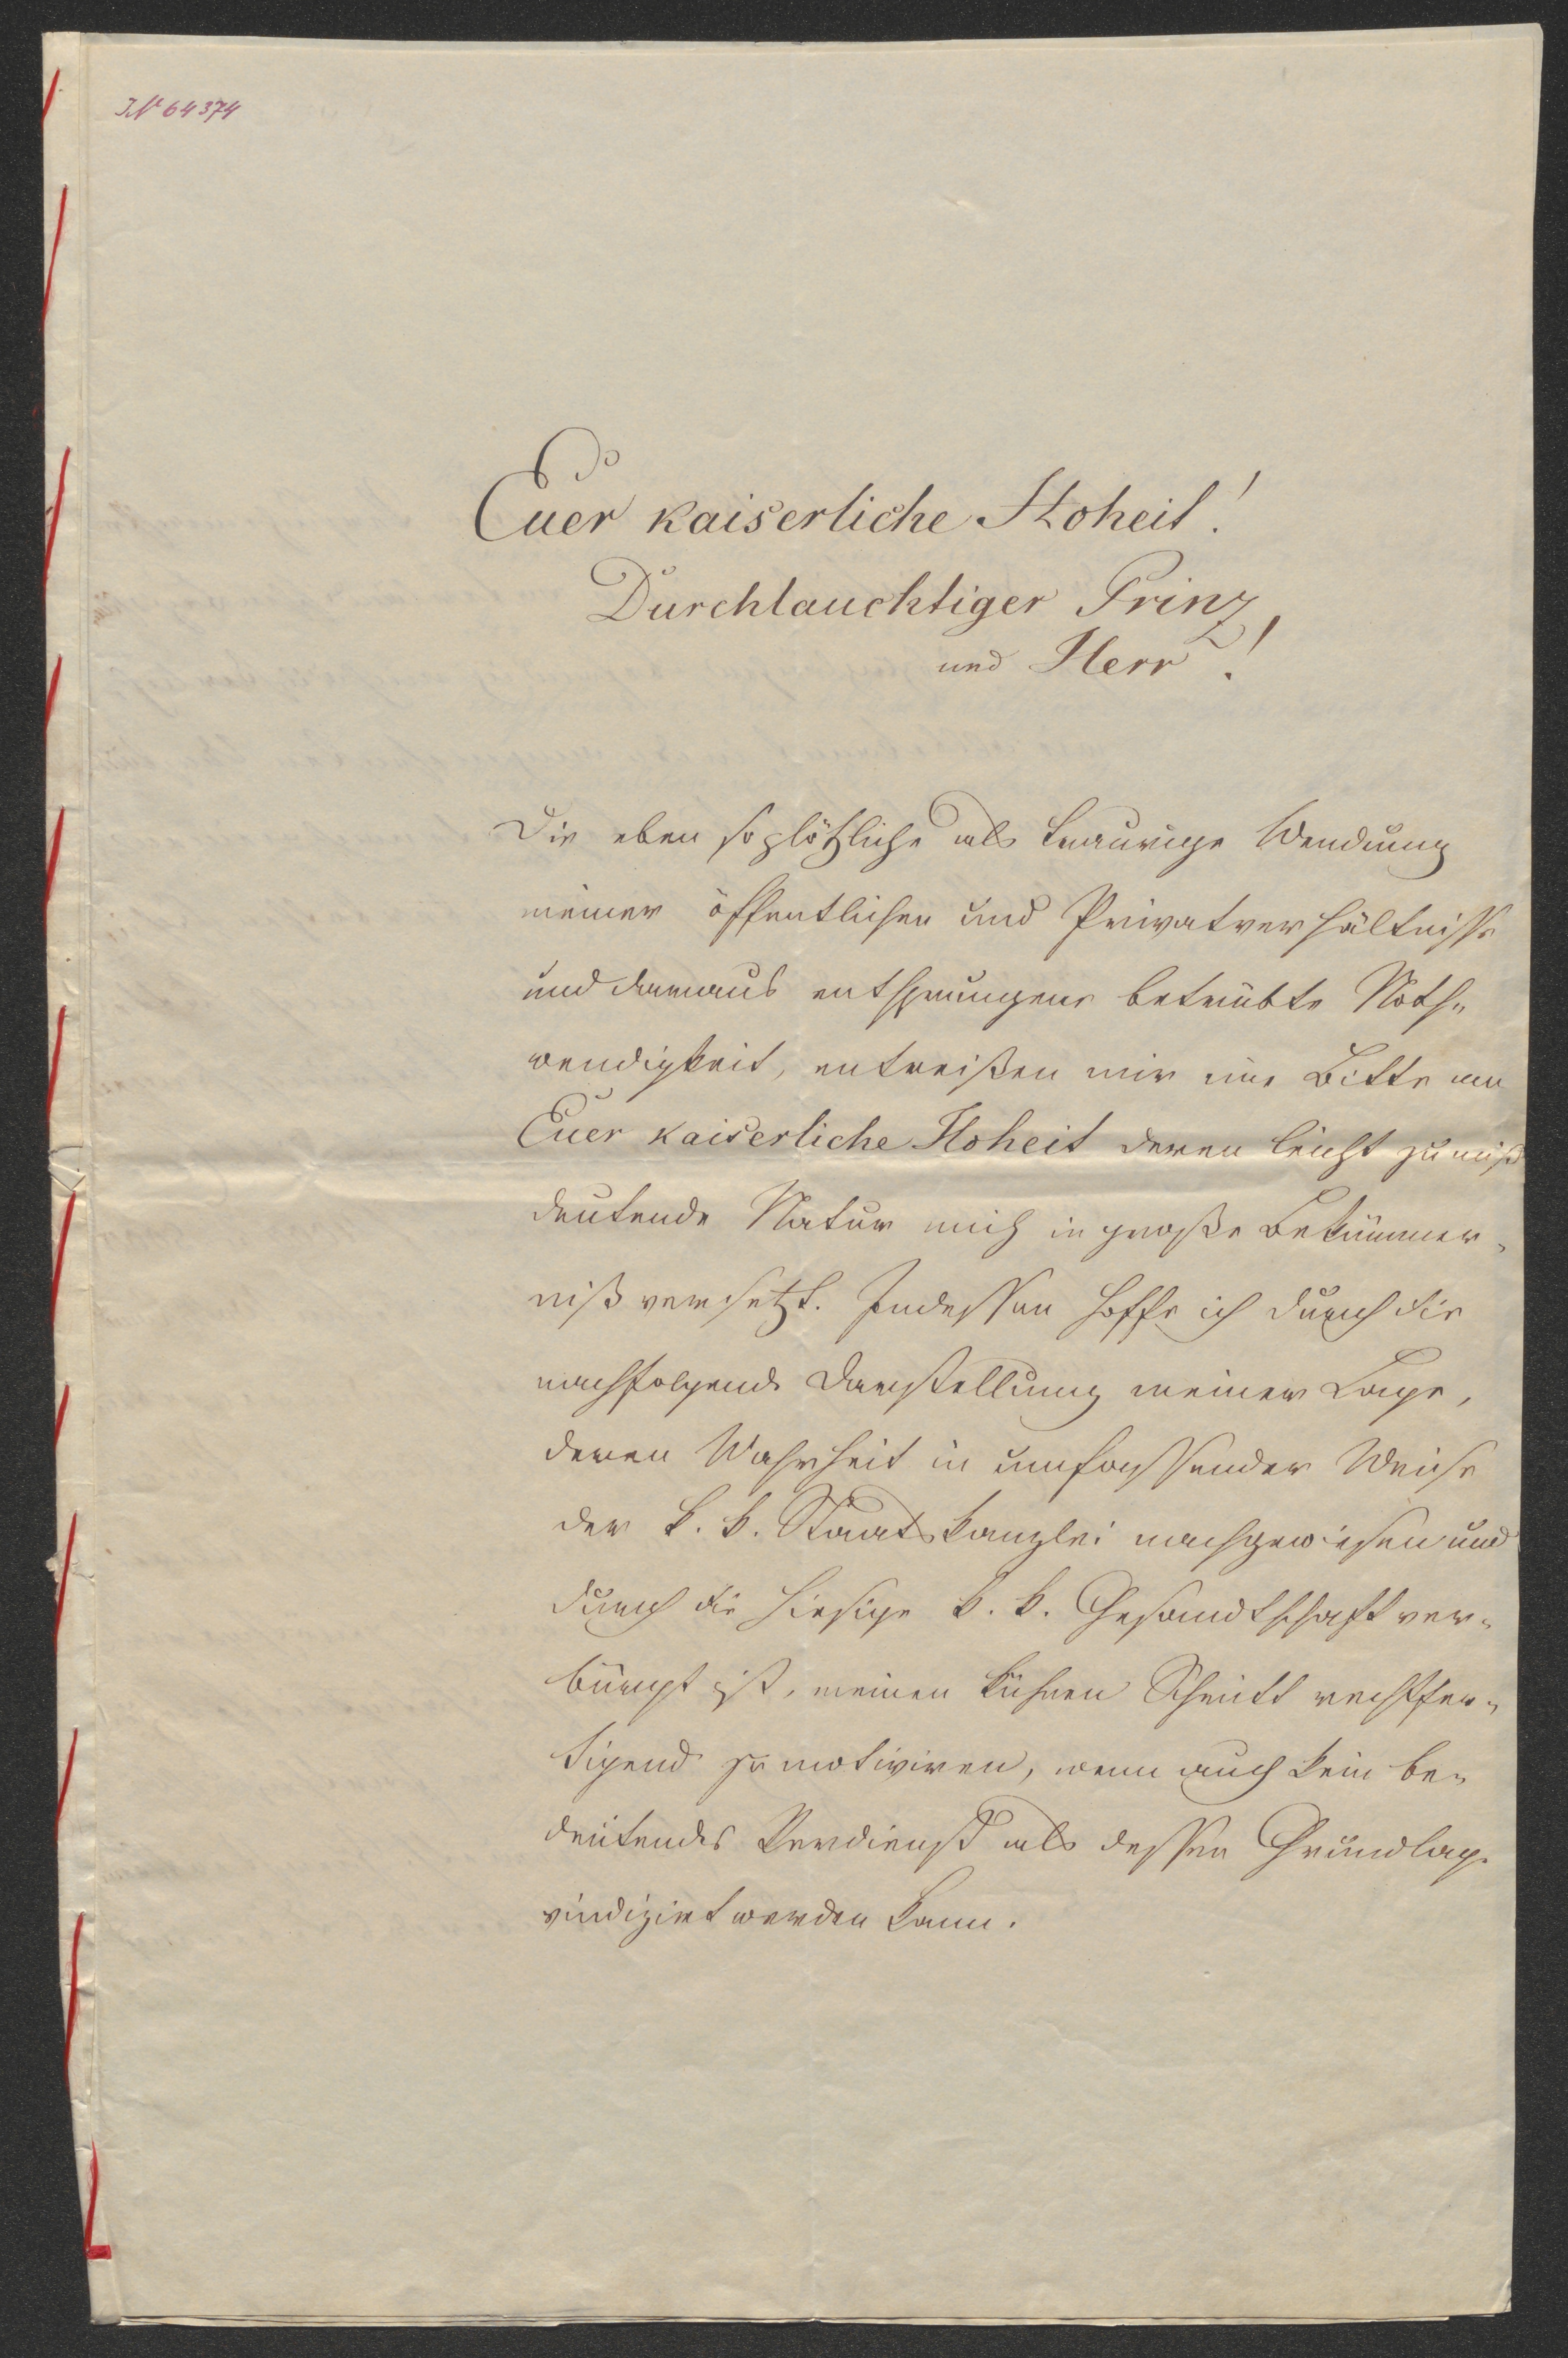 I.N 64374
Euer kaiserliche Hoheit!
Durchlauchtiger Prinz
und Herr!
Die eben so plötzliche als traurige Wendung
meiner öffentlichen und Privatverhältnisse
und daraus entsprungene betrübte Noth-
wendigkeit, entreißen mir eine Bitte an
Euer kaiserliche Hoheit deren leicht zu miß
deutende Natur mich in große Bekümmer-
niß versetzt. Indessen hoffe ich durch die
nachfolgende Darstellung meiner Lage,
deren Wahrheit in umfassender Weise
der k. k. Staatskanzlei nachgewiesen und
durch die hiesige k. k. Gesandtschaft ver-
bürgt ist, meinen kühnen Schritt rechtfer-
tigend zu motiviren, wenn auch kein be-
deutendes Verdienst als dessen Grundlage
vindizirt werden kann.